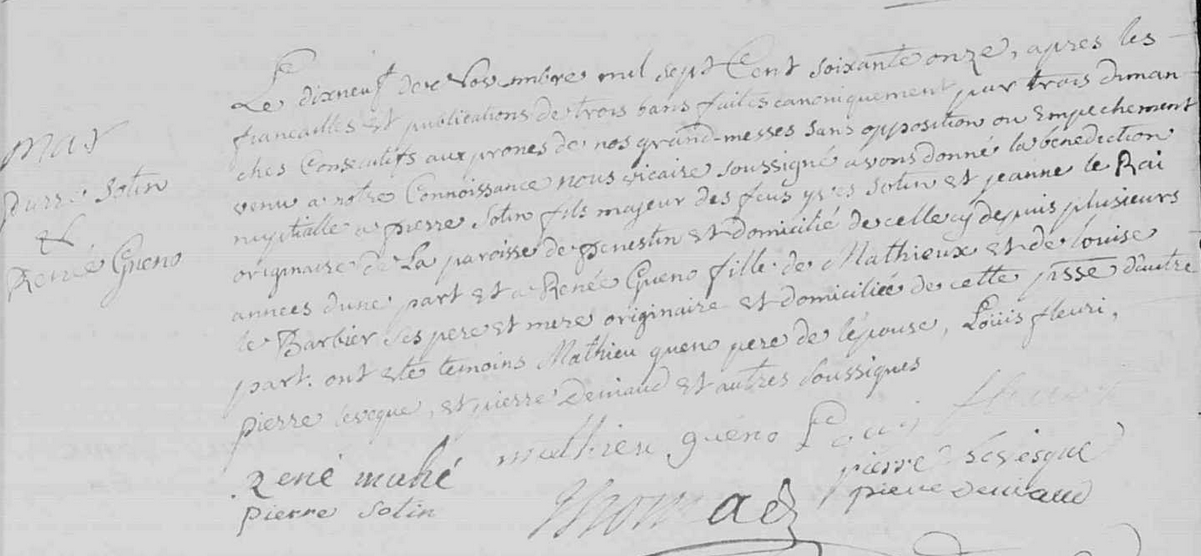 mar
pierre Sotin
&
Renée Gueno
Le dixneuf de Novembre mil sept Cent soixante onze, apres les
fiancailles et publications de trois bans faites canoniquement par trois diman
ches Consecutifs aux prones de nos grand-messes sans opposition ou Empechement
venu a notre Connoissance nous vicaire soussigné avons donné la benediction
nuptialle a pierre Sotin fils majeur des feus yves Sotin et jeanne le Rai
originaire de La paroisse de Penestin et domicilié de celle cy depuis plusieurs
années dune part et a Renée Gueno fille de Mathieux et de louise
le Barbier ses pere et mere originaire et domiciliée de cette psse d'autre
part. ont eté temoins Mathieu gueno pere de lépouse, Loüis fleuri,
pierre leveque, et pierre Deniaud et autres soussignes
mathieu gueno Louis fleuri
René mahé pierre Levesque
pierre Sotin pierre Deniaud
Thomas